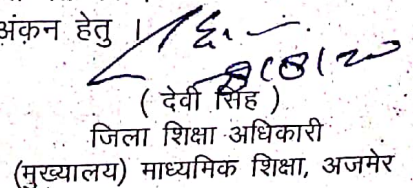 अंकन हेतु ।
8/8/20
( देवी सिंह )
जिला शिक्षा अधिकारी
(मुख्यालय) माध्यमिक शिक्षा, अजमेर